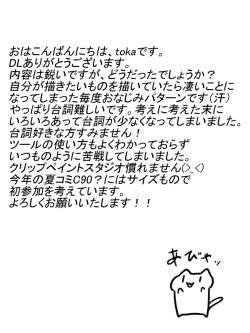 おはこんばんにちは、tokaです。
DLありがとうございます。
内容は鋭いですが、どうだったでしょうか？
自分が描きたいものを描いていたら凄いことに
なってしまった毎度おなじみパターンです（汗）
やっぱり台詞難しいです。考えに考えた末に
いろいろあって台詞が少なくなってしまいました。
台詞好きな方すみません！
ツールの使い方もよくわかっておらず
いつものように苦戦してしまいました。
クリップペイントスタジオ慣れません(>_<)
今年の夏コミC90？にはサイズもので
初参加を考えています。
よろしくお願いいたします！！
あびゃッ